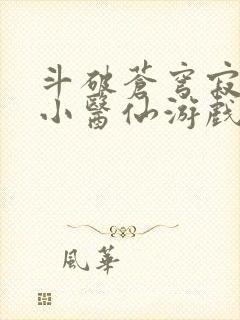 斗破蒼穹寂
小醫仙游戲
風華